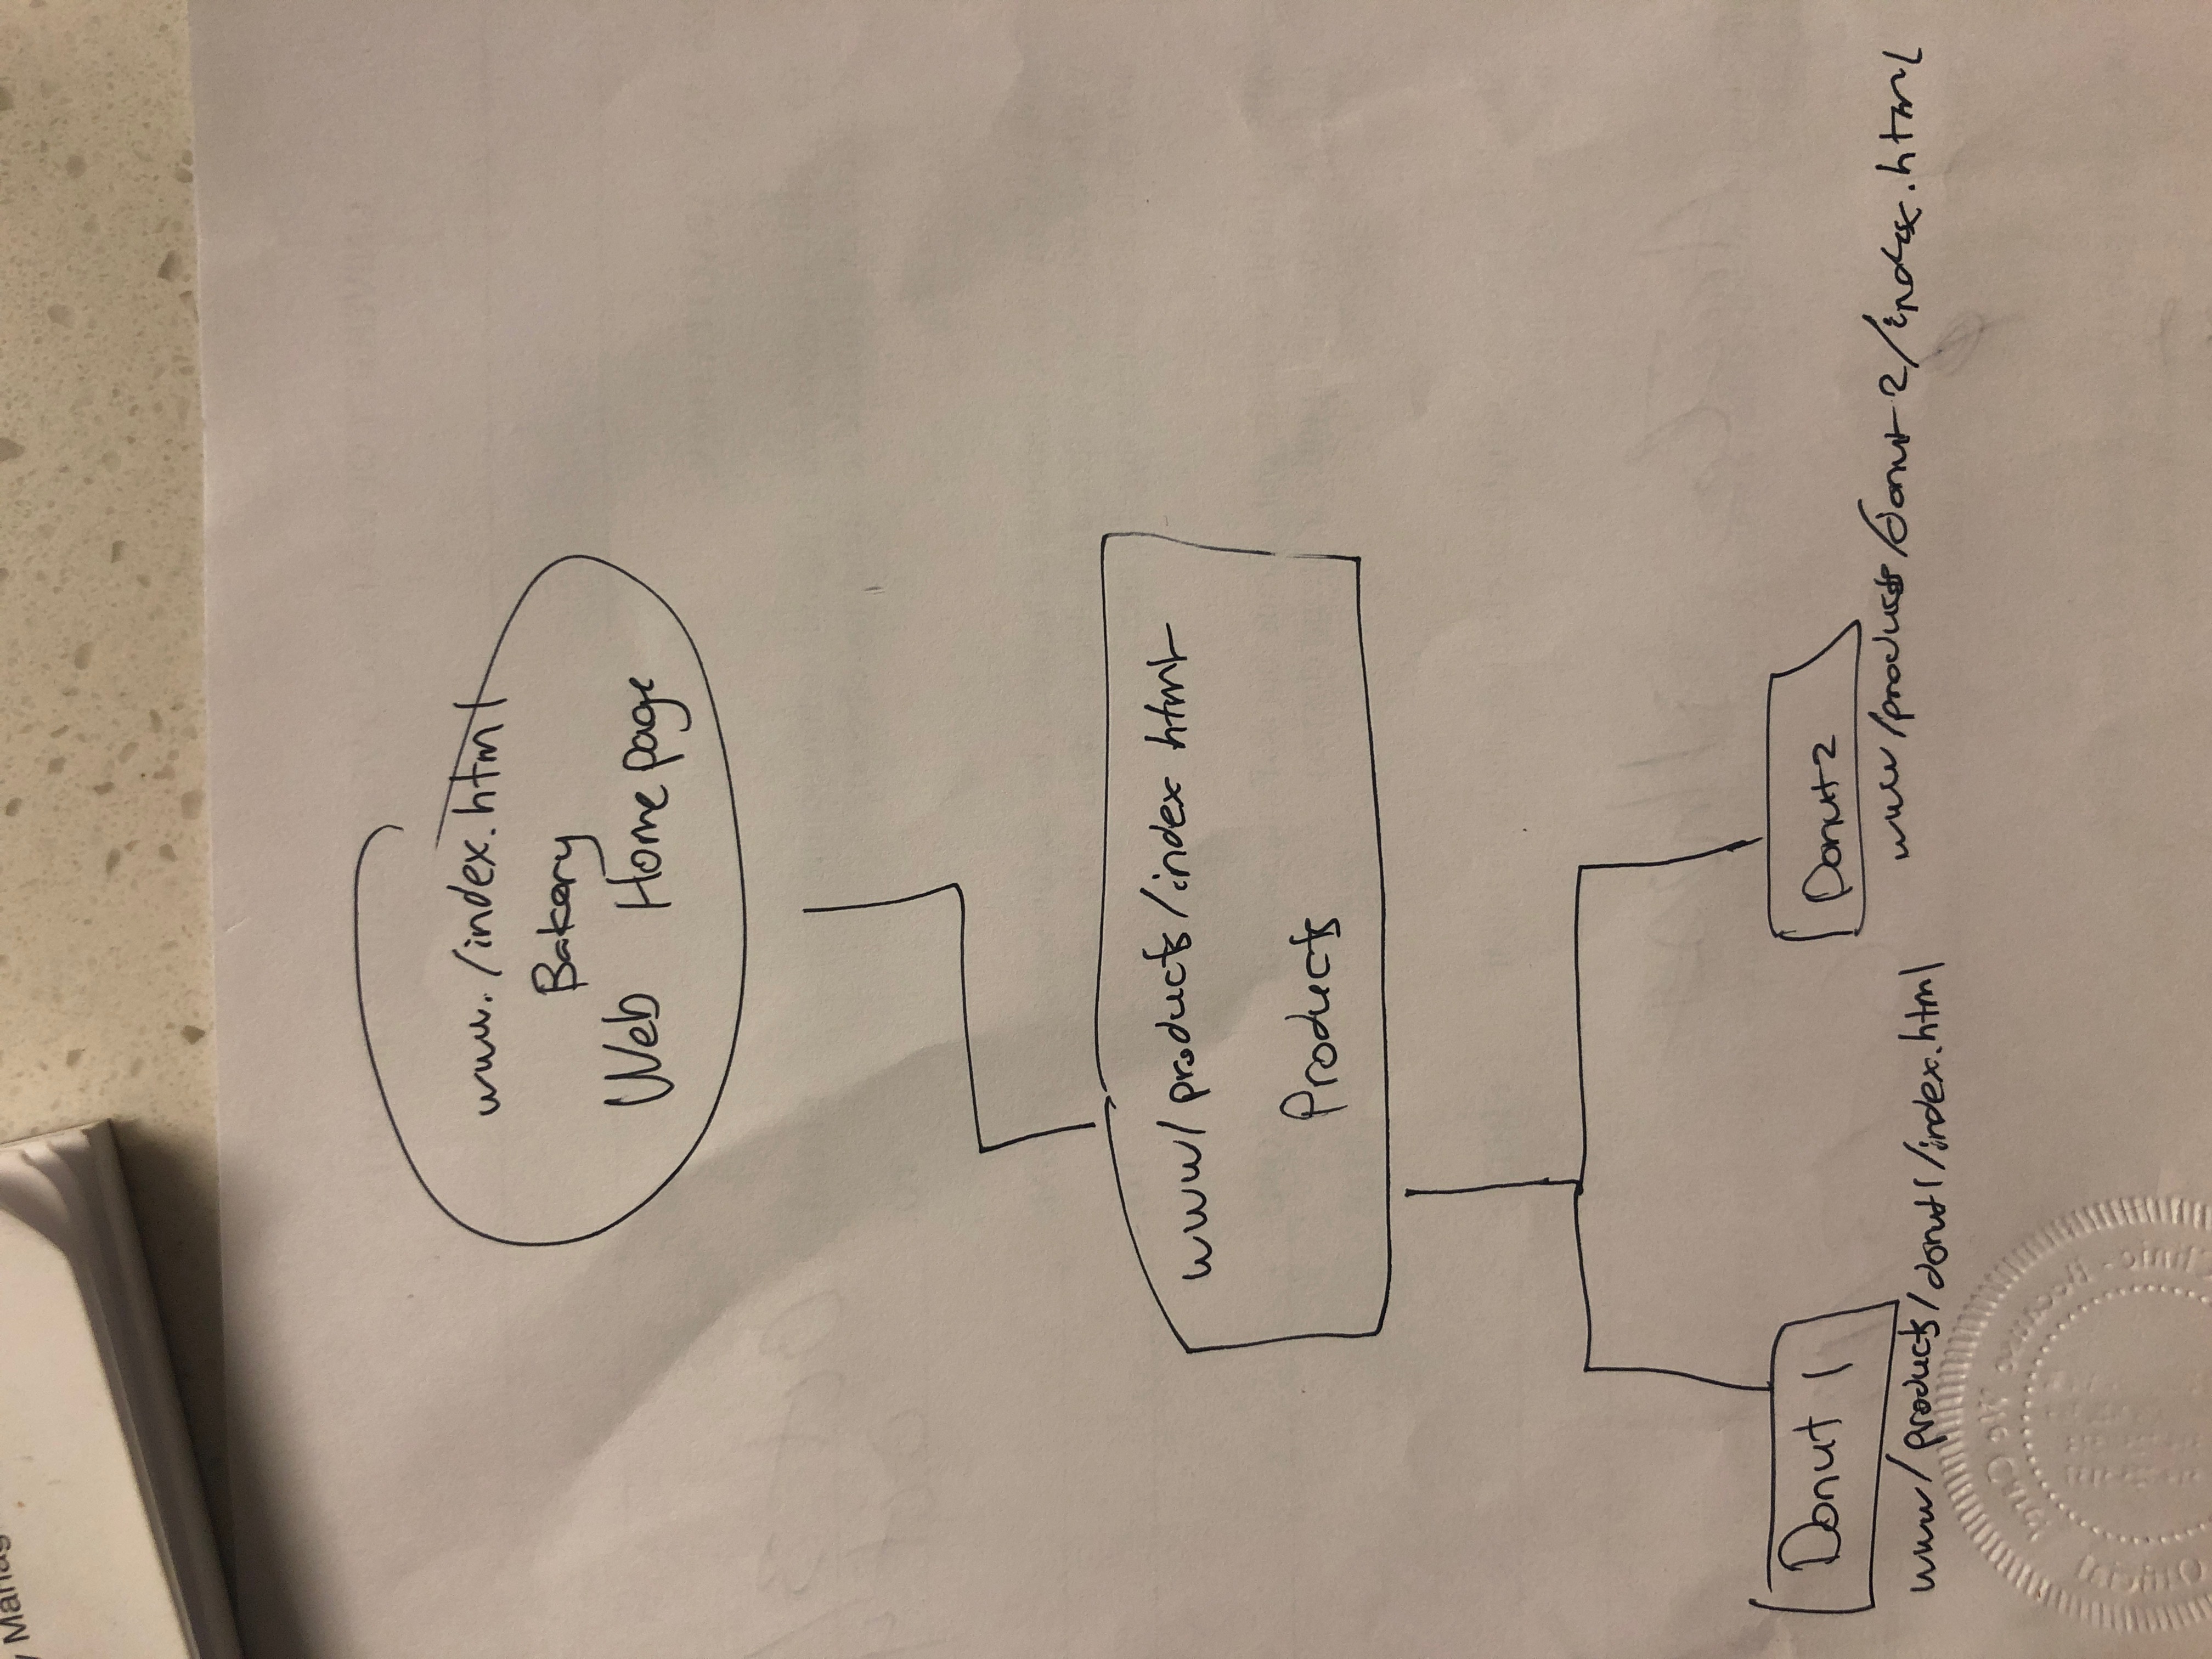 www./index.html
Bakery
Web Home page
www/products/index html
Products
Donut 1
www/products/donut1/index.html
Donut2
www/products/donut2/index.html
Official
Manas